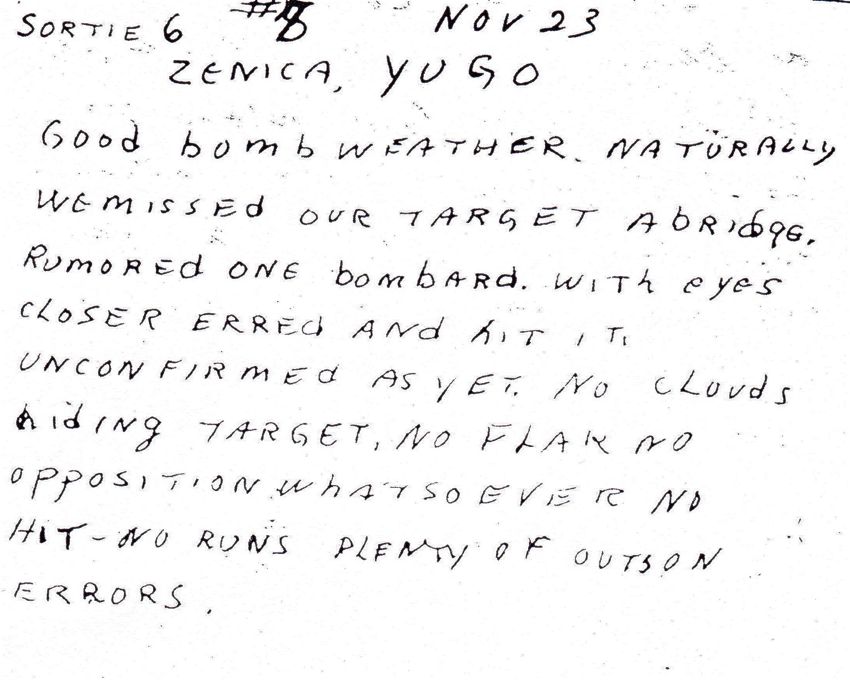 SORTIE 6 #8 NOV 23
ZENICA, YUGO
Good bomb WEATHER. NATURALLY
WE MISSED OUR TARGET A bRidge.
RUMORED ONE bombARd. WITh eyes
CLOSER ERREd ANd hIT IT.
UNCONFIRMEd AS YET. NO CLOUds
hidING TARGET, NO FLAK NO
OPPOSITION WhATSOEVER NO
HIT - NO RUNS PLENTY OF OUTS ON
ERRORS.